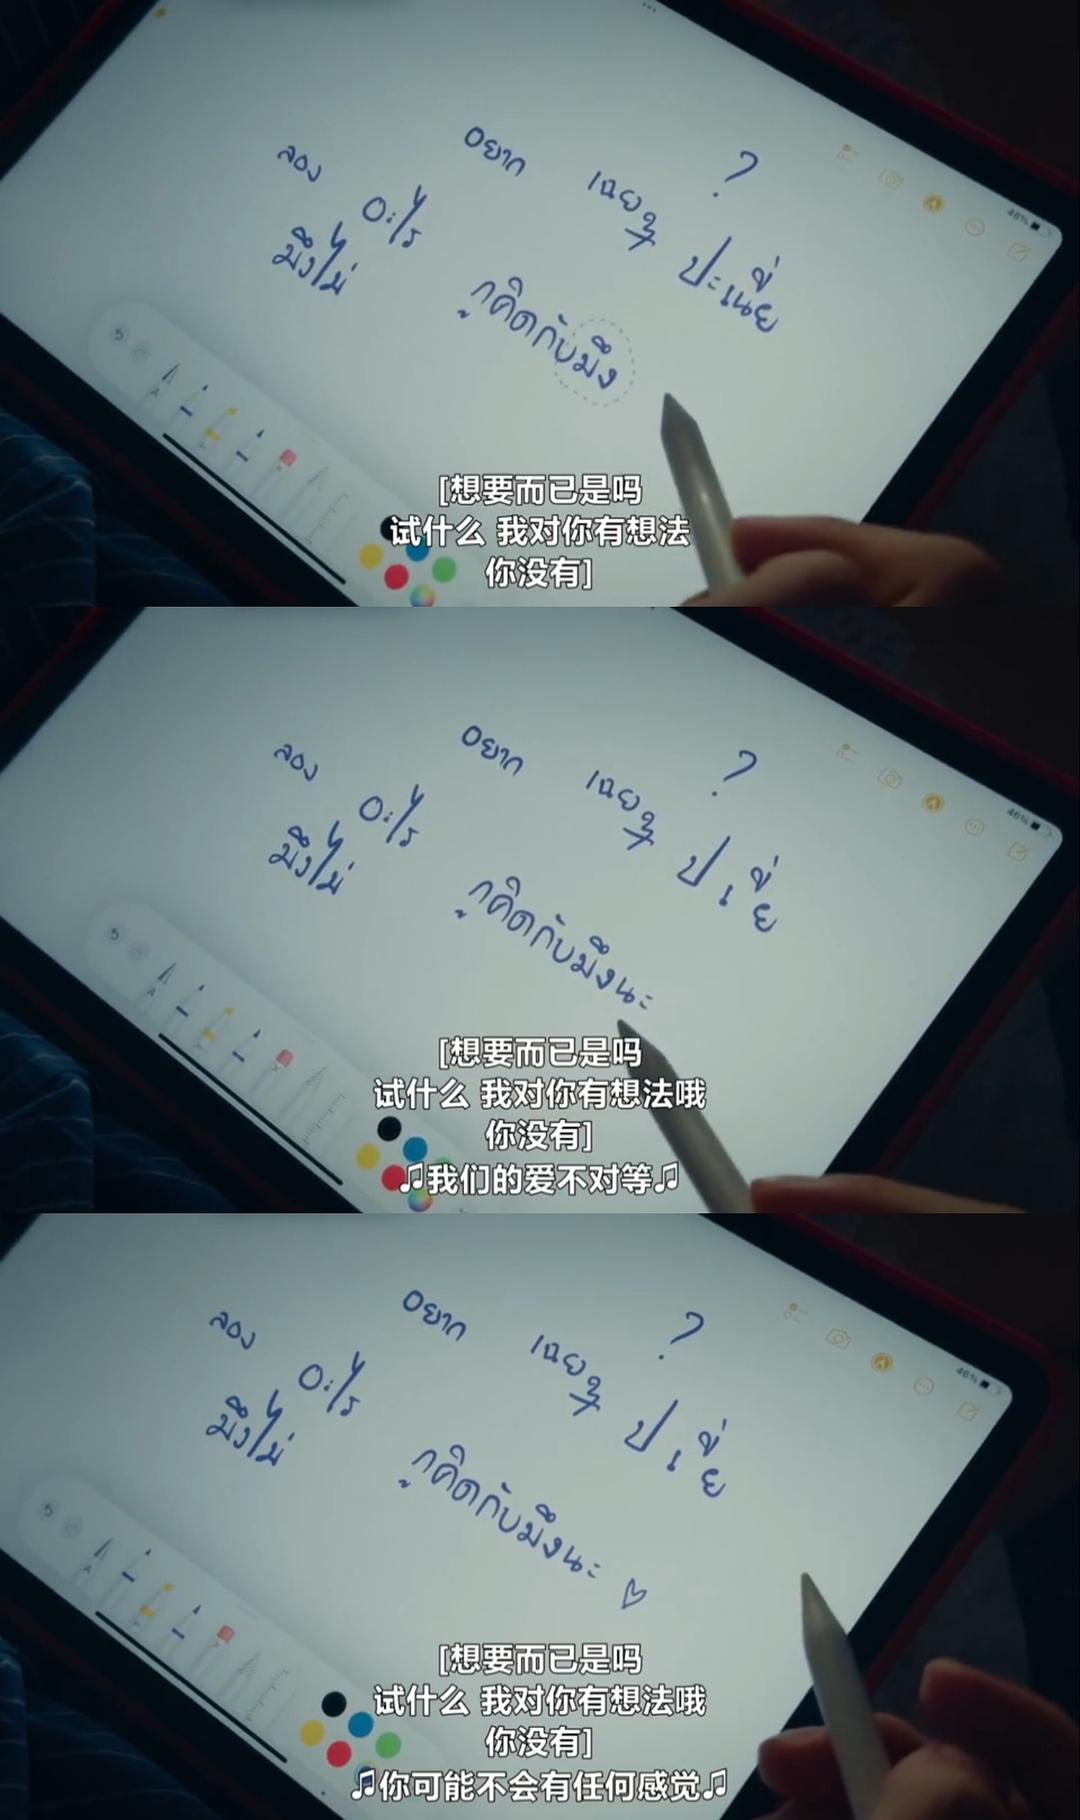 อยาก เฉยๆ ?
ลอง อะไร ปะเนี่ย
มึงไม่ กูคิดกับมึง
46%
[想要而已是吗
试什么 我对你有想法
你没有]
อยาก เฉยๆ ?
ลอง อะไร ป เ ่ ย
มึงไม่ กูคิดกับมึงนะ
46%
[想要而已是吗
试什么 我对你有想法哦
你没有]
♫我们的爱不对等♫
อยาก เฉยๆ ?
ลอง อะไร ป เ ่ ย
มึงไม่ กูคิดกับมึงนะ ♡
46%
[想要而已是吗
试什么 我对你有想法哦
你没有]
♫你可能不会有任何感觉♫